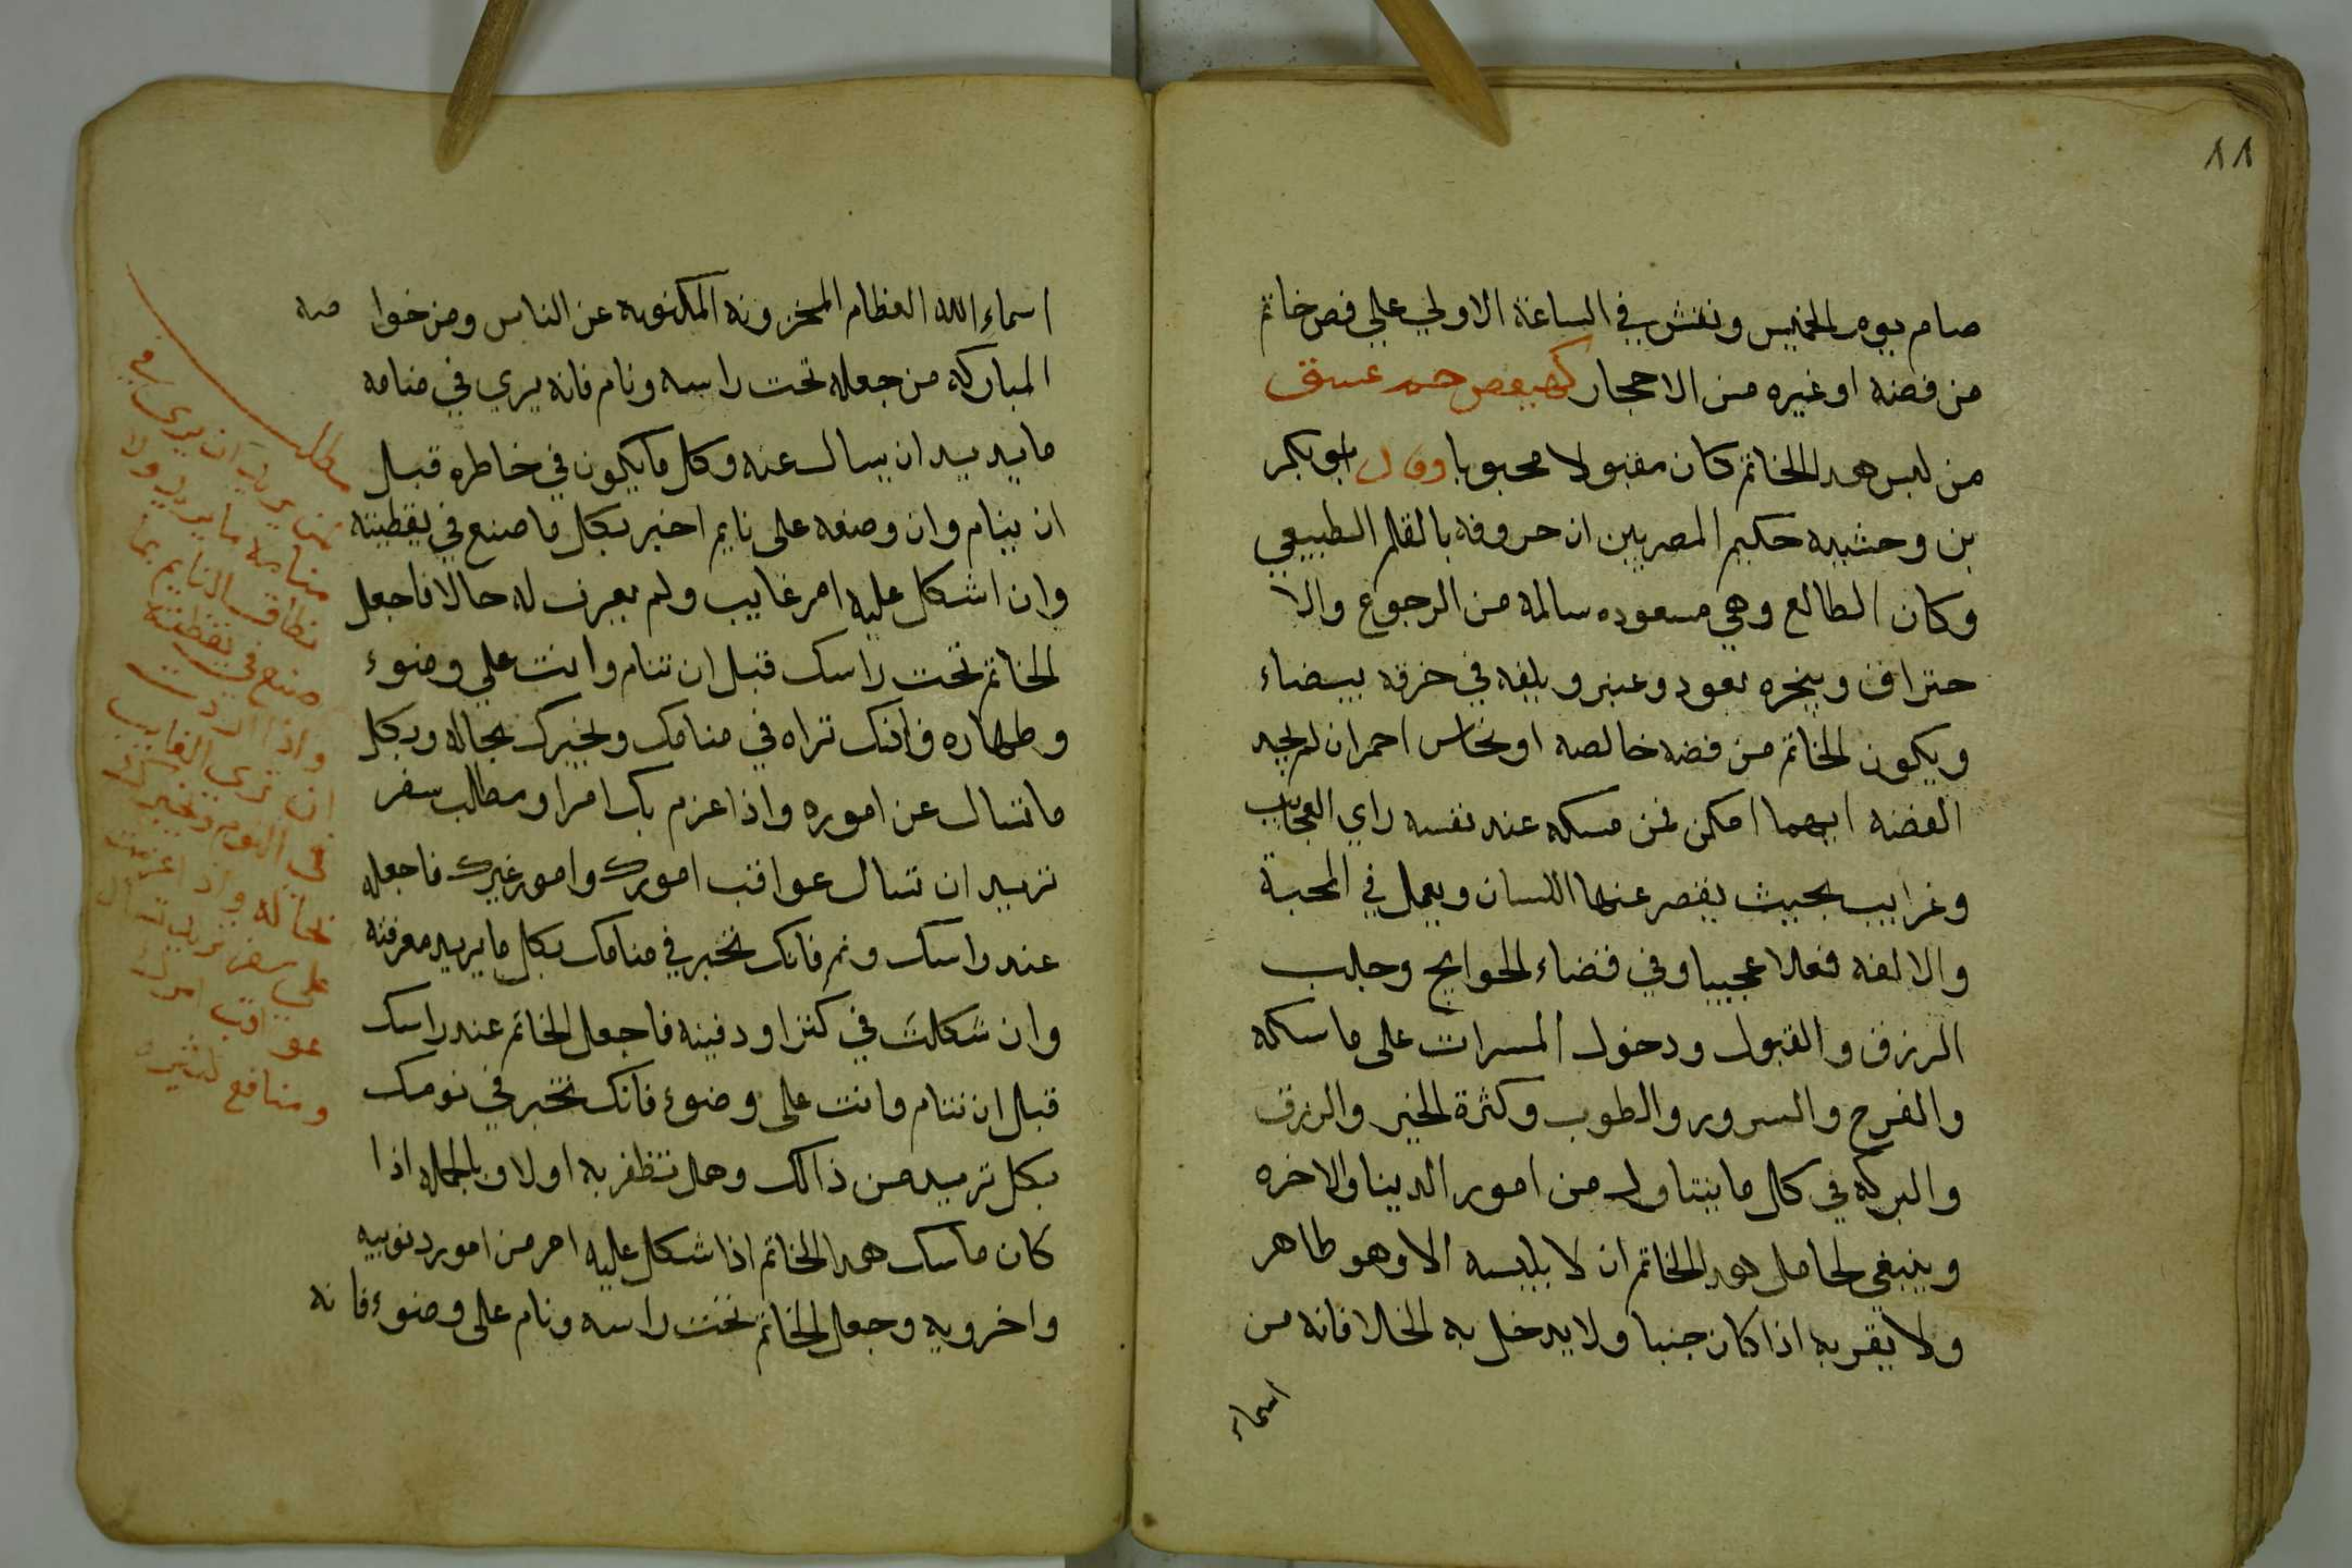 ٨٨
صام يوم الخميس ونقش في الساعة الاولي علي فص خاتم
من فضه او غيره من الاحجار كهيعص حم عسق
من لبس هدا الخاتم كان مقبولا محبوبا وقال ابو بكر
بن وحشيه حكيم المصريين ان حروفه بالقلم الطبيعي
وكان الطالع وهي مسعوده سالمة من الرجوع والا
حتراق ويبخره بعود وعنبر ويلفه في خرقه بيضاء
ويكون الخاتم من فضه خالصه او نحاس احمر ان لم يجد
الفضه ايهما امكن فمن مسكه عند نفسه راي العجايب
وغرايب بحيث يقصر عنها اللسان ويعمل في المحبة
والالفه فعلا عجيبا وفي قضاء الحوايج وجلب
الرزق والقبول ودخول المسرات على ماسكه
والفرح والسرور والطوب وكثرة الخير والرزق
والبركه في كل ما يتناول من امور الدينا والاخره
وينبغي لحامل هدا الخاتم ان لا يلبسه الا وهو طاهر
ولا يقربه اذا كان جنبا ولا يدخل به الخلا فانه من
اسماء
اسماء الله العظام المخزونه المكنونه عن الناس ومن خوا صه
المباركه من جعله تحت راسه ونام فانه يري في منامه
ما يريد ان يسال عنه وكل ما يكون في خاطره قبل
ان ينام وان وضعه على نايم اخبر بكل ما صنع في يقظيته
وان اشكل عليه امر غايب ولم يعرف له حالا فاجعل
الخاتم تحت راسك قبل ان تنام وانت علي وضوء
وطهاره فانك تراه في منامك ويخبرك بحاله وبكل
ما تسال عن اموره واذا عزم بك امرا ومطالب سفر
تريد ان تسال عواقب امورك وامور غيرك فاجعله
عند راسك ونم فانك تخبر في منامك بكل ما يريد معرفته
وان شكلت في كنزا ودفينه فاجعل الخاتم عند راسك
قبل ان تنام وانت على وضوء فانك تخبر في نومك
بكل تريد من ذالك وهل تظفر به اولا وبالجمله اذا
كان ماسك هدا الخاتم اذا شكل عليه امر من امور دنوييه
واخرويه وجعل الخاتم تحت راسه ونام على وضوء فانه
مطلب
لمن يريد ان يري في
منامه ما يريد وان
النايم بما
صنع في يقظته
واذا اردت
ان تري الغايب
في النوم ويخبرك
بحاله واذا عزمت
علي سفر تريد
عواقب امرك
ومنافع كثيره